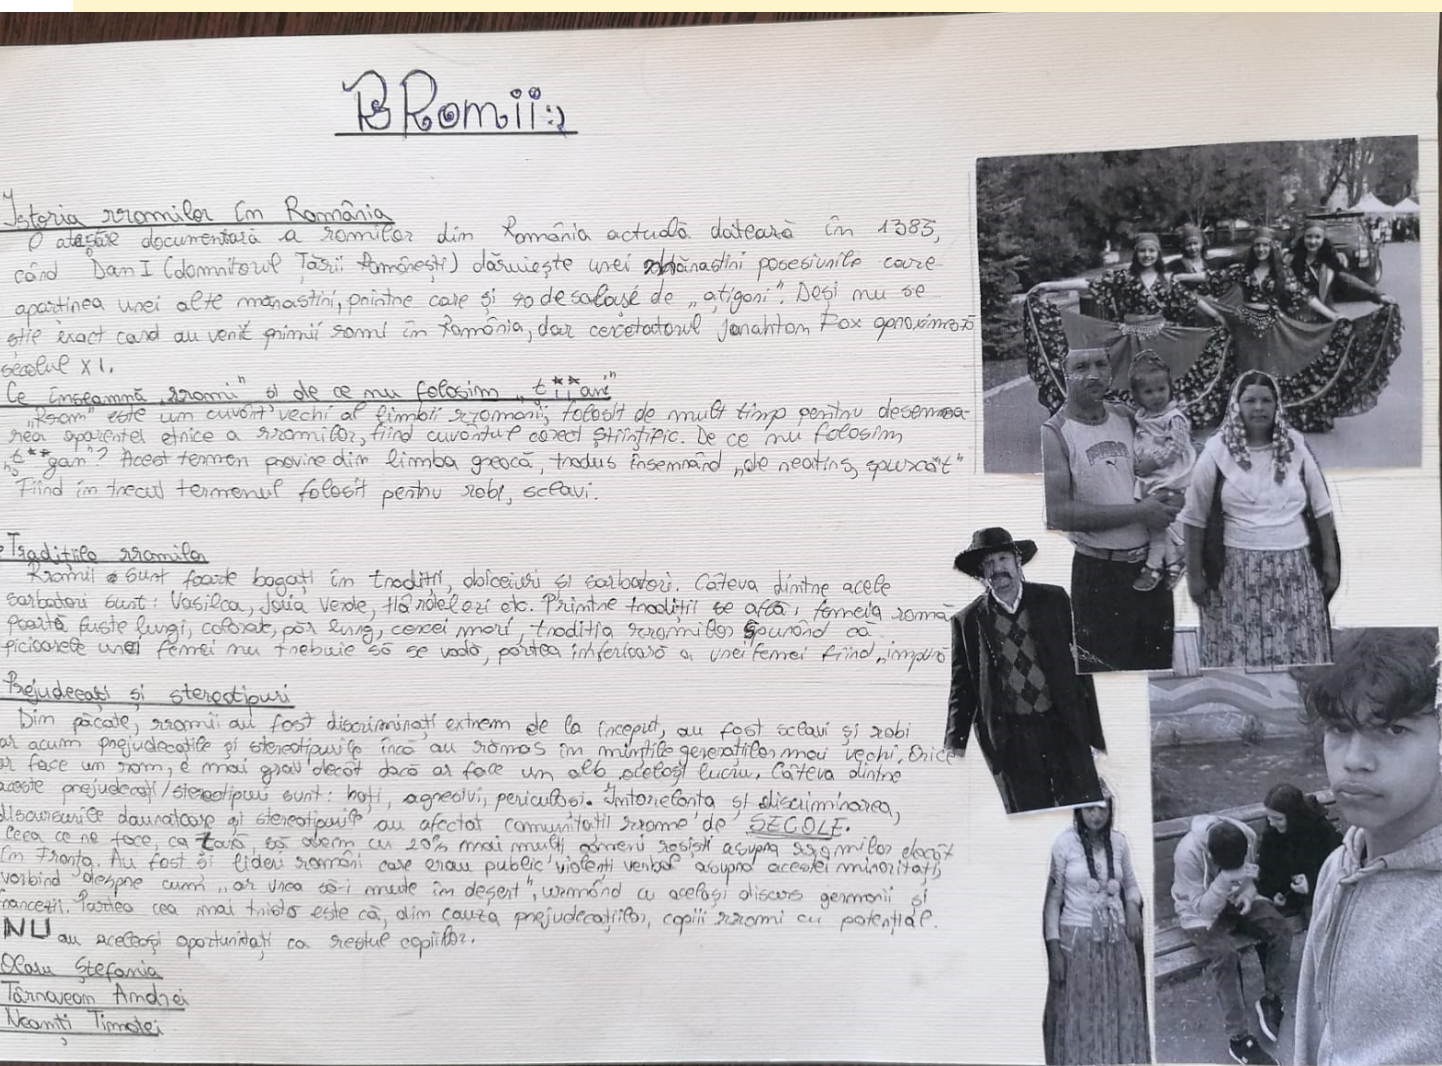 BRomii:)
Istoria rromilor în România
O atestare documentară a romilor din România actuală datează în 1385,
când Dan I (domnitorul Țării Românești) dăruiește unei mănastiri posesiunile care
apartinea unei alte mănastiri, printre care și 40 de salașe de „ațigani". Deși nu se
știe exact cand au venit primii romi în România, dar cercetatorul Jonahtan Fox aproximează
secolul XI.
Ce înseamnă „rromi" si de ce nu folosim „t**ani"
„Rrom" este un cuvânt vechi al limbii rromani, folosit de mult timp pentru desemna-
rea aparentei etnice a rromilor, fiind cuvântul corect științific. De ce nu folosim
„t**gan"? Acest termen provine din limba greacă, tradus însemnând „de neatins, spurcat"
Fiind în trecut termenul folosit pentru robi, sclavi.
Tradițiile rromilor
Rromii sunt foarde bogați în tradiții, obiceiuri si sarbatori. Câteva dintre acele
sarbatori sunt: Vasilca, Joia Verde, etc. Printre tradiții se află: femeia romă
Poartă fuste lungi, colorate, păr lung, cercei mari, tradiția rromilor spunând că
picioarele unei femei nu trebuie să se vadă, partea inferioară a unei femei fiind „impură
Prejudecați și stereotipuri
Din păcate, rromii au fost discriminați extrem de la început, au fost sclavi și robi
ar acum prejudecațile și stereotipurile încă au rămas în mințile generațiilor mai vechi. Orice
ar face un rom, e mai grav decât dacă ar face un alb același lucru. Câteva dintre
aceste prejudecați/stereotipuri sunt: hoți, agresivi, periculoși. Intorelanta și discriminarea,
discursurile daunatoare și stereotipurile au afectat comunitatii rrome de SECOLE.
Ceea ce ne face, ca țară, să avem cu 20% mai mulți oameni rasisti asupra rromilor decât
în Franța. Au fost și lideri români care erau public violenți verbal asupra acestei minoritați,
vorbind despre cum „ar vrea să-i mute în deșert", urmând cu același discurs germanii și
francezii. Partea cea mai tristă este că, din cauza prejudecațiilor, copiii rromi cu potențial
NU au aceleași oportunitați ca restul copiilor.
Olaru Ștefania
Târnovean Andrei
Neamți Timotei